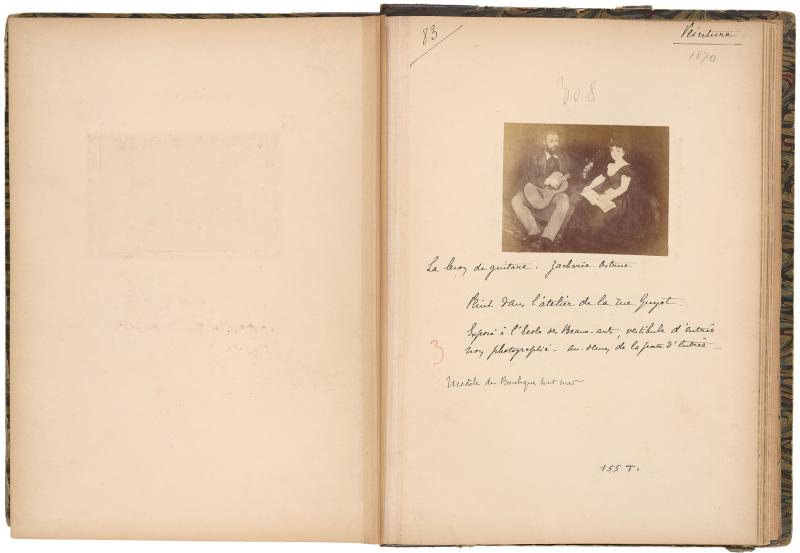 83
Peinture
1870
308
La leçon de guitare. Zacharie Astruc
Peint dans l'atelier de la rue Guyot.
Exposé à l'École des Beaux-arts, vestibule d'entrée
non photographié. au-dessus de la porte d'entrée
3
Modèle de
155 T.